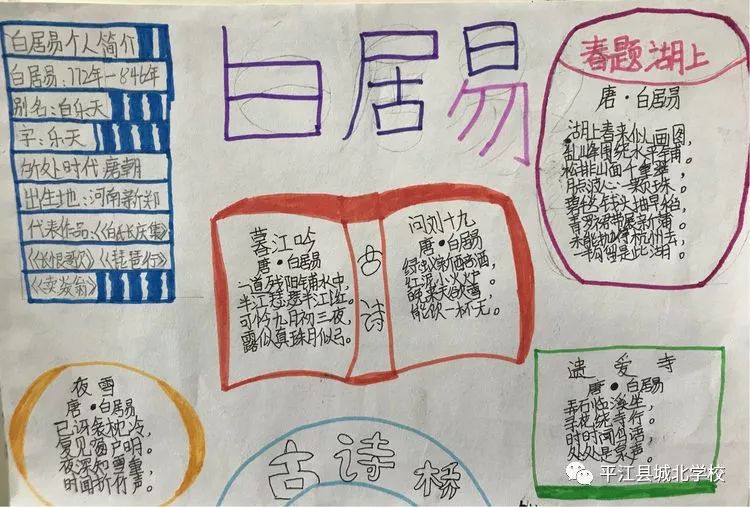 白居易
白居易个人简介
白居易:772年—846年
别名:白乐天
字:乐天
所处时代唐朝
出生地:河南新郑
代表作品:《白氏长庆集》
《长恨歌》《琵琶行》
《卖炭翁》
春题湖上
唐·白居易
湖上春来似画图,
乱峰围绕水平铺。
松排山面千重翠,
月点波心一颗珠。
碧毯线头抽早稻,
青罗裙带展新蒲。
未能抛得杭州去,
一半勾留是此湖。
暮江吟
唐·白居易
一道残阳铺水中,
半江瑟瑟半江红。
可怜九月初三夜,
露似真珠月似弓。
古诗
问刘十九
唐·白居易
绿蚁新醅酒,
红泥小火炉。
晚来天欲雪,
能饮一杯无。
夜雪
唐·白居易
已讶衾枕冷,
复见窗户明。
夜深知雪重,
时闻折竹声。
遗爱寺
唐·白居易
弄石临溪坐,
寻花绕寺行。
时时闻鸟语,
处处是泉声。
古诗
平江县城北学校